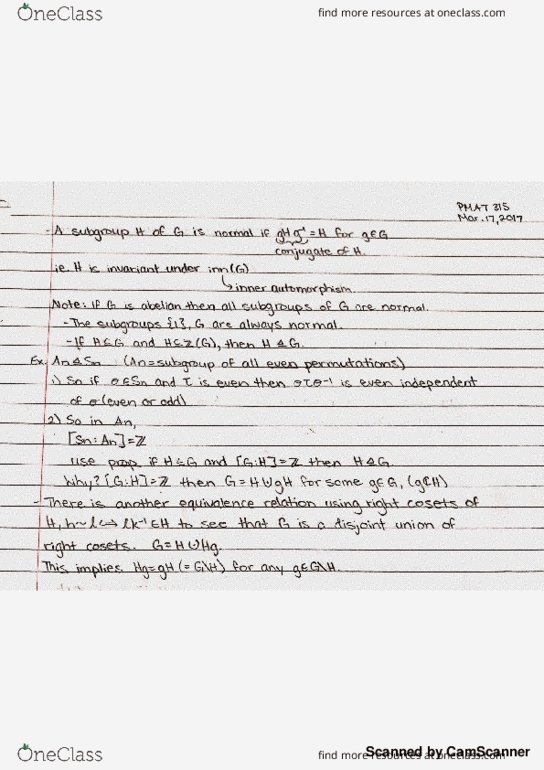 OneClass
find more resources at oneclass.com
PMAT 315
Mar. 17, 2017
- A subgroup H of G is normal if gHg⁻¹ = H for g∈G
conjugate of H.
ie. H is invariant under inn(G)
↳ inner automorphism.
Note: if G is abelian then all subgroups of G are normal.
- The subgroups {1}, G are always normal.
- If H≤G and H≤Z(G), then H⊴G.
Ex. An⊴Sn (An = subgroup of all even permutations)
1) So if σ∈Sn and τ is even then στσ⁻¹ is even independent
of σ (even or odd)
2) So in An,
[Sn:An]=Z
use prop. if H≤G and [G:H]=Z then H⊴G.
Why? [G:H]=Z then G=H∪gH for some g∈G, (g∉H)
- There is another equivalence relation using right cosets of
H, h~l ↔ lk⁻¹∈H to see that G is a disjoint union of
right cosets. G=H∪Hg.
This implies. Hg=gH (=G\H) for any g∈G\H.
OneClass
find more resources at oneclass.com
Scanned by CamScanner